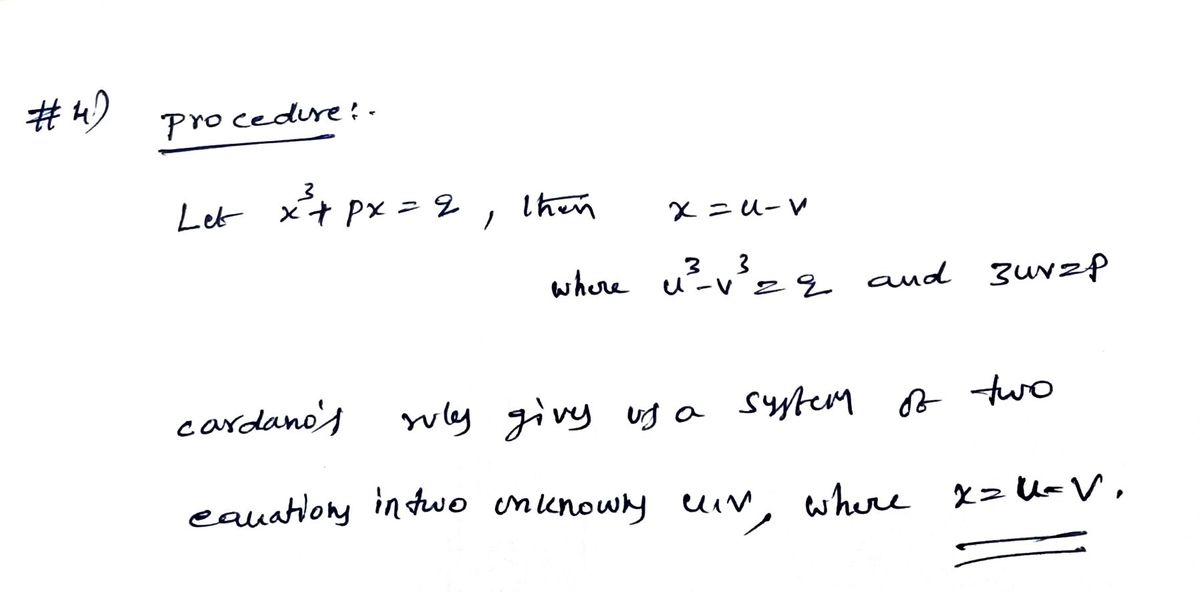 #4) Procedure:-
Let x³+ px = q, then x = u-v
where u³-v³ = q and 3uv=p
cardano's rules gives us a system of two
equations in two unknowns u,v, where x = u-v.